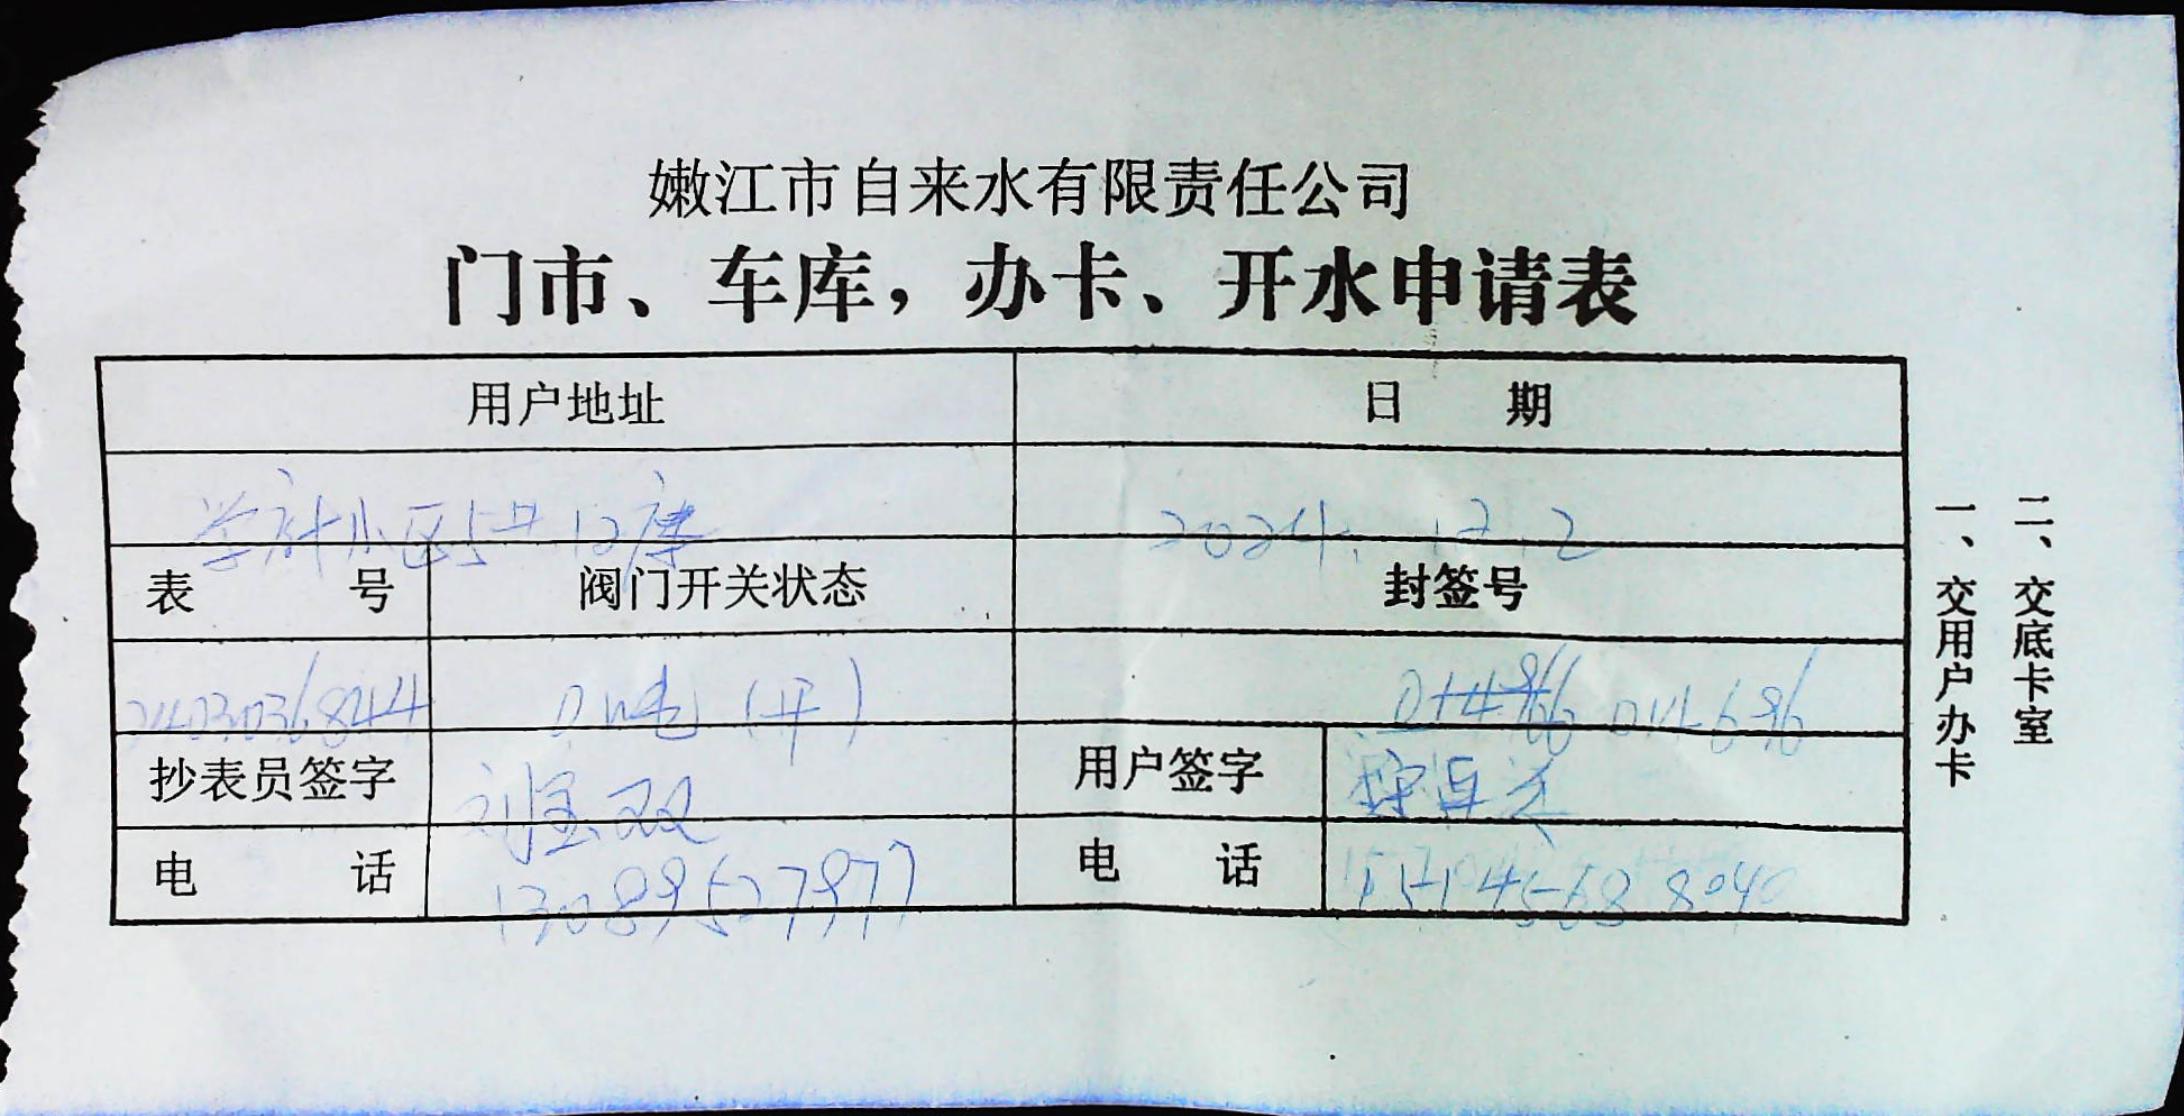 嫩江市自来水有限责任公司
门市、车库，办卡、开水申请表
用户地址 日 期
学府小区5# 12库 2024. 12. 2
表 号 阀门开关状态 封签号
2403036844 0吨 (开)
抄表员签字 刘宝双 用户签字
电 话 13089527977 电 话
一、交用户办卡
二、交底卡室